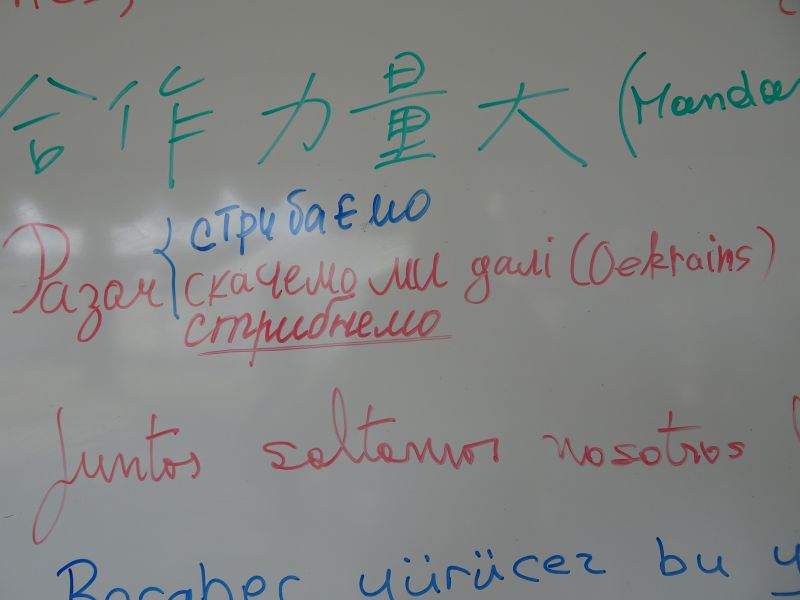 合作力量大 (Manda
стрибаємо
Разом { скачемо ми далі (Oekrains)
стрибнемо
Juntos saltamos nosotros
yürücez bu